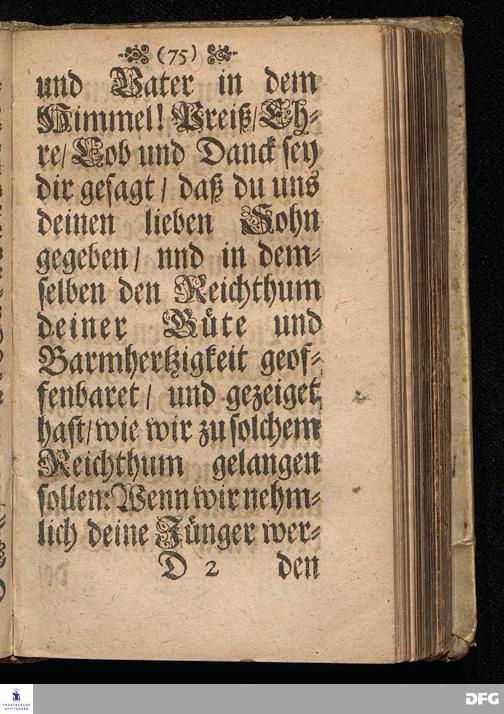 (75)
und Vater in dem
Himmel! Preiß/Eh⸗
re/Lob und Danck sey
dir gesagt/ daß du uns
deinen lieben Sohn
gegeben/ nnd in dem⸗
selben den Reichthum
deiner Güte und
Barmhertzigkeit geof⸗
fenbaret/ und gezeiget
hast/wie wir zu solchem
Reichthum gelangen
sollen: Wenn wir nehm⸗
lich deine Jünger wer⸗
D 2 den
FRANCKESCHE
STIFTUNGEN
DFG